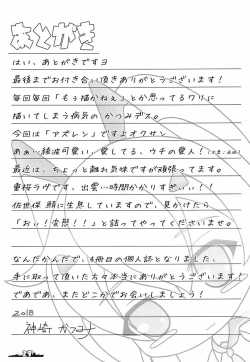 あとがき
はい、あとがきですヨ
最後までお付き合い頂きありがとうございます!
毎回毎回「もう描かねえ」とか思ってるワリに
描いてしまう病気の かつみデス。
今回は「アズレン」ですよオクサン
あぁ…綾波可愛い、愛してる、ウチの愛人!
最近は、ちょっと離れ気味ですが頑張ってます。
重桜ラヴです、出雲…時間かかりすぎぃ!!
佐世保 鯖に生息していますので、見かけたら
「おぃ!妄想!!」と詰ってやってくださいませ。
なんだかんだで、4冊目の個人誌となりました、
手に取って頂いた方々本当にありがとうございます!
であであ、またどこかでお会いしましょう!
2018